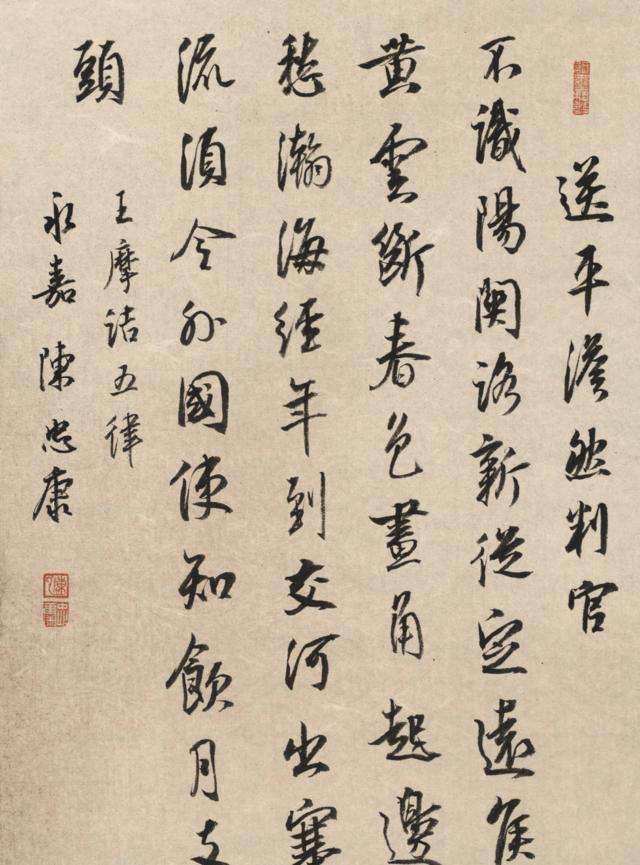 送平澹然判官
不識陽關路新從定遠侯
黄雲斷春色畫角起邊
愁瀚海經年到交河出塞
流須令外國使知飲月支
頭
王摩詰五律
永嘉陳忠康